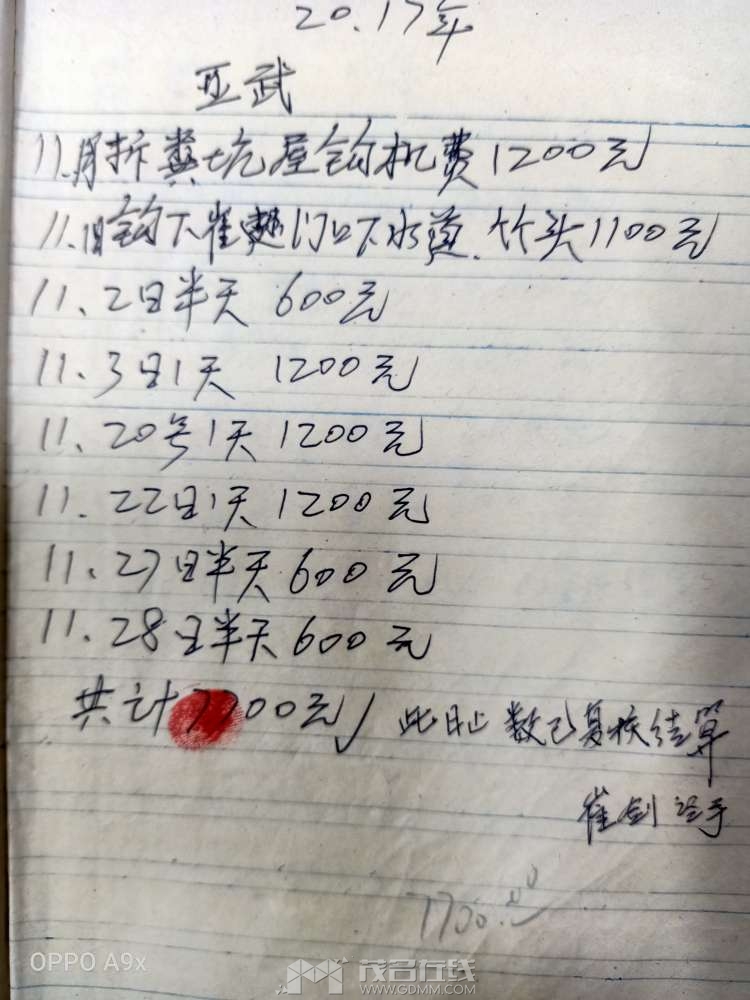 20.17年
亚武
11.月拆粪坑屋钩机费1200元
11.1日钩下崔门口下水道.竹头1100元
11.2日半天 600元
11.3日1天 1200元
11.20号1天1200元
11.22日1天1200元
11.27日半天600元
11.28日半天600元
共计7700元 此日止 数已复核结算
崔剑 经手
7700.00
OPPO A9x
茂名在线
WWW.GDMM.COM